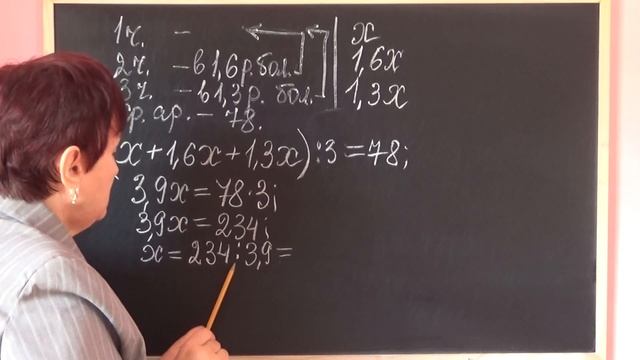 1ч. – x
2ч. – в 1,6 р. бол. 1,6x
3ч. – в 1,3 р. бол. 1,3x
р. ар. – 78.
x + 1,6x + 1,3x) : 3 = 78;
3,9x = 78·3;
3,9x = 234;
x = 234 : 3,9 =